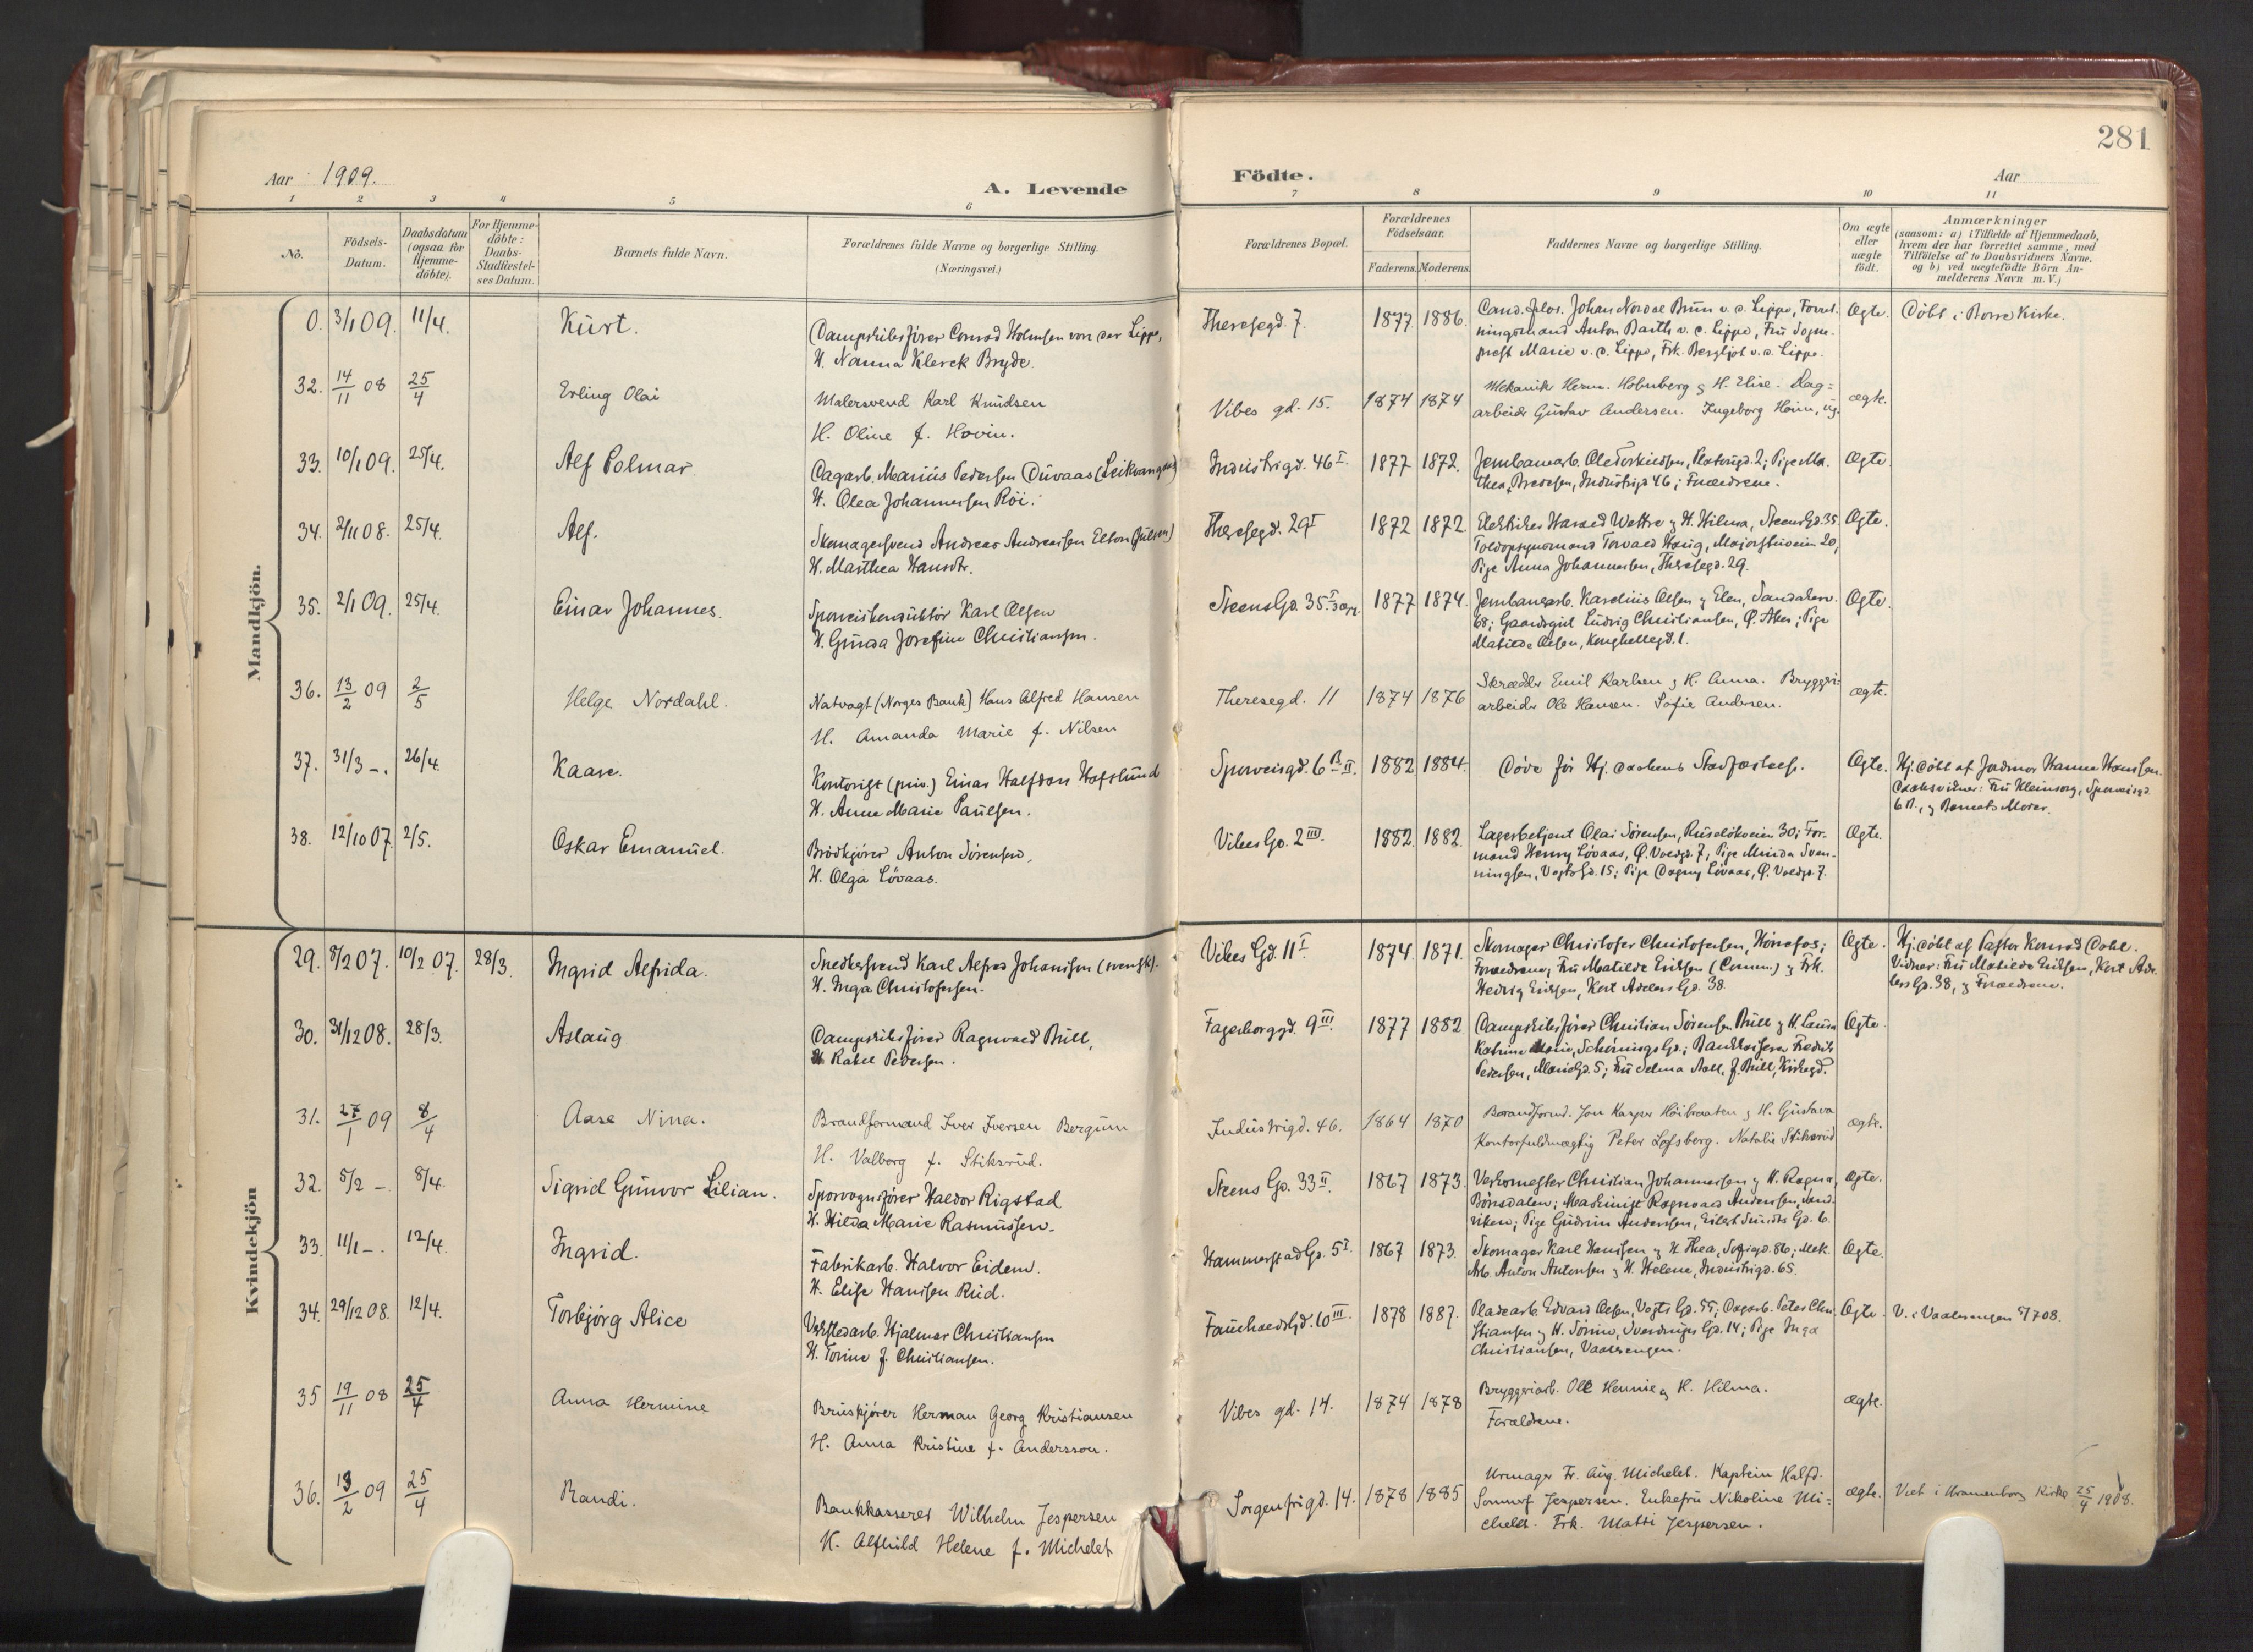 281
Aar 1909.
A. Levende
Födte.
Aar
1 2 3 4 5 6 7 8 9 10 11
No.
Födsels-
Datum.
Daabsdatum
(ogsaa for
Hjemme-
döbte).
For Hjemme-
döbte:
Daabs-
Stadfæstel-
ses Datum.
Barnets fulde Navn.
Forældrenes fulde Navne og borgerlige Stilling.
(Næringsvei.)
Forældrenes Bopæl.
Forældrenes
Födselsaar.
Faderens. Moderens.
Faddernes Navne og borgerlige Stilling.
Om ægte
eller
uægte
födt.
Anmærkninger
(saasom: a) i Tilfælde af Hjemmedaab,
hvem der har forrettet samme, med
Tilföielse af to Daabsvidners Navne.
og b) ved uægtefödte Börn An-
melderens Navn m. V.)
Mandkjön.
0. 3/1 09. 11/4. Kurt.
Dampskibsfører Conrad Holmsen von der Lippe,
H. Nanna Klerck Bryde.
Theresegd. 7. 1877 1886.
Cand. filos. Johan Nordal Brun v. d. Lippe, Forret-
ningsmand Anton Barth v. d. Lippe, Fru Sogne-
prest Marie v. d. Lippe, Frk. Bergljot v. d. Lippe.
Ægte. Döbt i Borre Kirke.
32. 14/11 08 25/4 Erling Olai
Malersvend Karl Knudsen
H. Oline f. Hovin.
Vibes gd. 15. 1874 1874
Mekanik Herm. Holmberg og H. Elise. Dag=
arbeider Gustav Andersen. Ingeborg Hovin, ug.
ægte.
33. 10/1 09. 25/4. Alf Polmar
Dagarb. Marius Pedersen Duvaas (Leikvangen)
H. Olea Johannessen Röi.
Industrigd. 46 I. 1877 1872.
Jernbanearb. Ole Torkildsen, 2; Pige Ma-
thea Bredesen, Industrigd 46; Forældrene.
Ægte
34. 2/11 08. 25/4. Alf.
Skomagersvend Andreas Andreasen Elton
H. Marthea Hansdtr.
Theresegd. 29 I 1872 1872
Elektriker Harald Wettre og H. Hilma, Steens Gd. 35
Toldopsynsmand Torvald Haug, Majorstuveien 20,
Pige Anna Johannessen, Theresegd. 29.
Ægte.
35. 2/1 09. 25/4. Einar Johannes.
Sporveiskonduktör Karl Olsen
H. Gunda Josefine Christiansen.
Steens Gd. 35 I 1877 1874.
Jernbanearb. Karelius Olsen og Elen,
68; Gaardsgut Ludvig Christiansen, Ö. Aker; Pige
Matilde Olsen, Konghellegd. 1.
Ægte.
36. 13/2 09 2/5 Helge Nordahl.
Natvagt (Norges Bank) Hans Alfred Hansen
H. Amanda Marie f. Nilsen
Theresegd. 11 1874 1876
Skrædder Emil Karlsen og H. Anna. Bryggeri-
arbeider Ole Hansen. Sofie Andersen.
ægte.
37. 31/3 –. 26/4. Kaare.
Kontorist (priv.) Einar Halfdan Hafslund
H. Anna Marie Paulsen.
Sporveisgd. 6 B II. 1882 1884.
Döde för Hj. daabens Stadfæstelse.
Ægte. Hj. döbt af Jordmor Hanna Hansen.
Daabsvidner: Fru Kleinsorg, Sporveisgd.
6 B., og Barnets Moder.
38. 12/10 07. 2/5. Oskar Emanuel.
Brödkjörer Anton Sörensen,
H. Olga Lövaas.
Vibes Gd. 2 III. 1882. 1882.
Lagerbetjent Olai Sörensen, Ruselökveien 30; For-
mand Henry Lövaas, Ö. Voldgd. 7; Pige Minda Sven-
ningsen, Vogts Gd. 15; Pige Dagny Lövaas, Ö. Voldgd. 7.
Ægte.
Kvindekjön
29. 8/2 07. 10/2 07. 28/3. Ingrid Alfrida.
Snedkersvend Karl Alfred Johansson (svensk).
H. Inga Christofersen.
Vibes Gd. 11 I 1874. 1871.
Skomager Christofer Christofersen, Hönefos;
Forældrene, Fru Matilde Eriksen (Comm.) og Frk.
Hedvig Eriksen, Kort Adelers Gd. 38.
Ægte. Hj. döbt af Pastor Konrad Dahl.
Vidner: Fru Matilde Eriksen, Kort Ade-
lers Gd. 38, og Forældrene.
30. 31/12 08. 28/3. Aslaug
Dampskibsförer Ragnvald Bull,
H. Rakel Pedersen.
Fagerborggd. 9 III. 1877 1882
Dampskibsförer Christian Sörensen Bull og H. Laura
Katrine Marie, Schönings Gd.; Bankkasserer Fredrik
Pedersen, 5; Fru Selma Aall, f. Bull, Kirkegd.
Ægte.
31. 27/1 09 8/4 Aase Nina.
Brandformand Iver Iversen Bergum
H. Valborg f. Stiksrud.
Industrigd. 46. 1864 1870
Brandformd. Jon Kasper Höibraaten og H. Gustava
Kontorfuldmægtig Peter Lofsberg. Natalie Stiksrud
ægte.
32. 5/2 –. 8/4. Sigrid Gunvor Lilian.
Sporvognsförer Haldor Rigstad
H. Hilda Marie Rasmussen.
Steens Gd. 33 II. 1867 1873.
Verksmester Christian Johannessen og H. Ragna,
Börsdalen; Maskinist Ragnvald Andersen, Sand-
viken; Pige Gudrun Andersen, Eilert Sundts Gd. 6.
Ægte.
33. 11/1 –. 12/4. Ingrid.
Fabrikarb. Halvor Eidem.
H. Elise Hansen Rud.
Hammerstad Gd. 5 I. 1867 1873.
Skomager Karl Hansen og H. Thea, Sofigd. 86; Mek.
Arb. Anton Antonsen og H. Helene, Industrigd. 65.
Ægte.
34. 29/12 08. 12/4. Torbjörg Alice
Verkstedarb. Hjalmar Christiansen
H. Torine f. Christiansen.
Fauchalds Gd. 10 III. 1878 1887.
Pladearb. Edvard Olsen, Vogts Gd. 55; Dagarb. Peter Chri-
stiansen og H. Sörine, Sverdrups Gd. 14; Pige Inga
Christiansen, Vaalerengen.
Ægte. V. i Vaalerengen 5/7 08.
35 19/11 08 25/4 Anna Hermine
Bruskjörer Herman Georg Kristiansen
H. Anna Kristine f. Andersson.
Vibes gd. 14. 1874 1878
Bryggeriarb. Ole Hennie og H. Hilma.
Forældrene.
ægte.
36. 13/2 09 25/4 Randi.
Bankkasserer Wilhelm Jespersen
H. Alfhild Helene f. Michelet
Sorgenfrigd. 14. 1878 1885
Urmager Fr. Aug. Michelet. Kaptein Halfd.
Jespersen. Enkefru Nikoline Mi=
chelet. Frk. Matti Jespersen.
ægte. Viet i Uranienborg Kirke 25/4 1908.